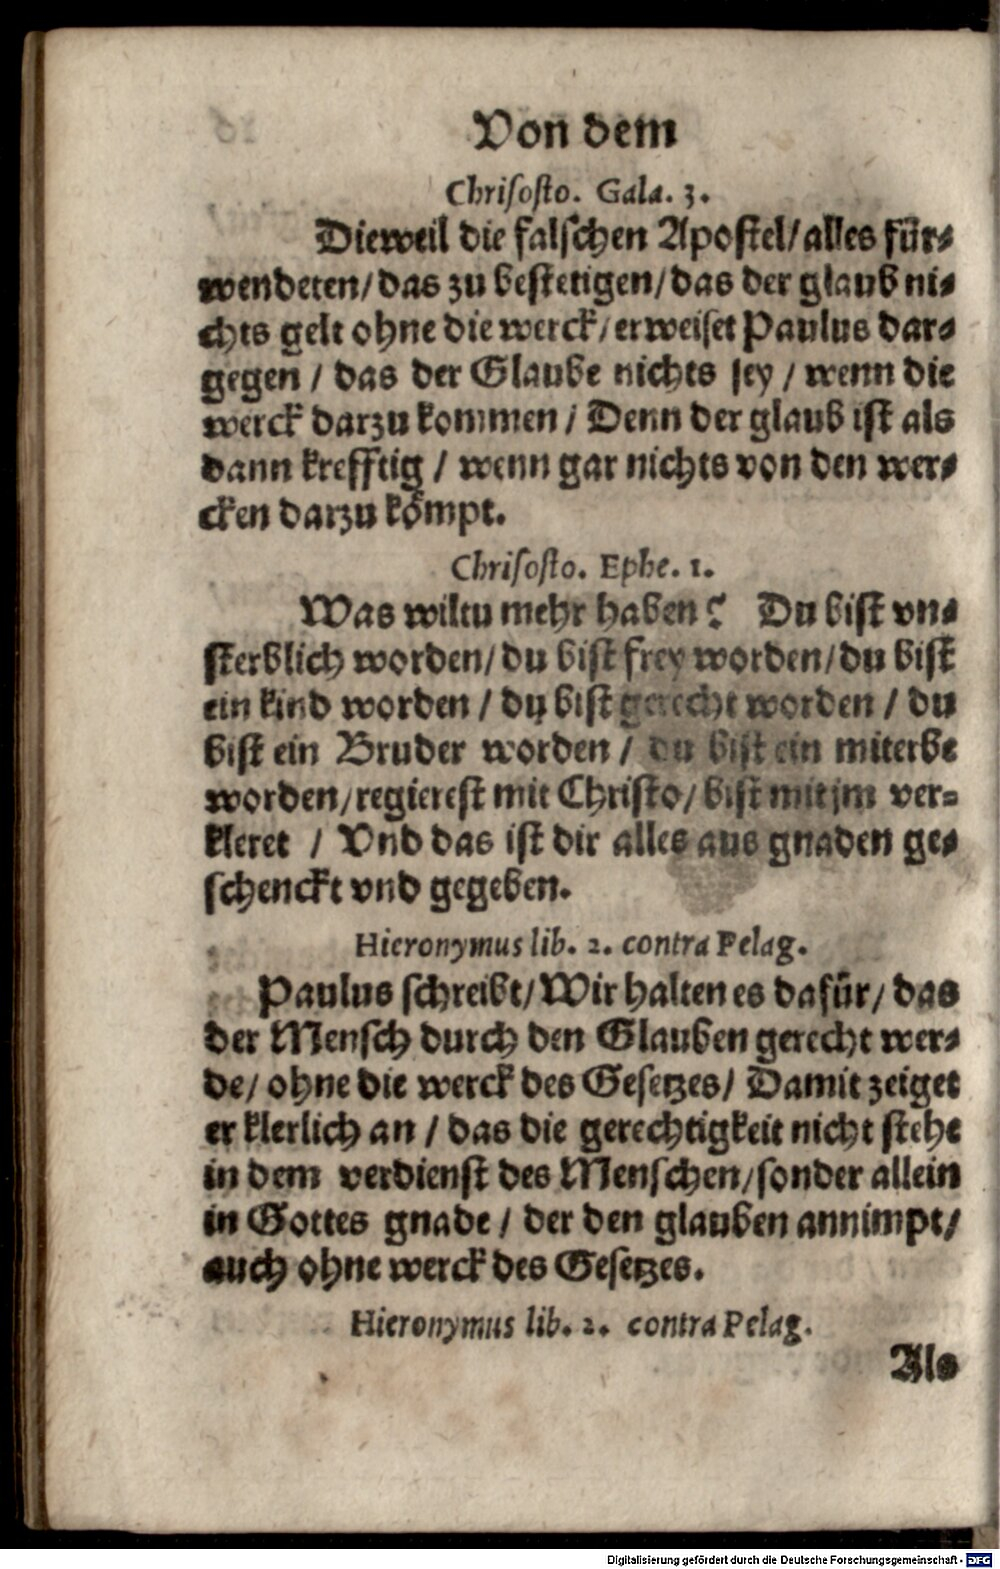 Von dem
Chriſoſto. Gala. 3.
Dieweil die falſchen Apoſtel/ alles fuͤr⸗
wendeten/ das zu beſtetigen/ das der glaub ni⸗
chts gelt ohne die werck/ erweiſet Paulus dar⸗
gegen / das der Glaube nichts ſey / wenn die
werck darzu kommen / Denn der glaub iſt als
dann krefftig / wenn gar nichts von den wer⸗
cken darzu koͤmpt.
Chriſoſto. Ephe. 1.
Was wiltu mehr haben? Du biſt vn⸗
ſterblich worden/ du biſt frey worden/ du biſt
ein kind worden / du biſt gerecht worden / du
biſt ein Bruder worden / du biſt ein miterbe
worden/ regiereſt mit Chriſto/ biſt mit jm ver⸗
kleret / Vnd das iſt dir alles aus gnaden ge⸗
ſchenckt vnd gegeben.
Hieronymus lib. 2. contra Pelag.
Paulus ſchreibt/ Wir halten es dafuͤr/ das
der Menſch durch den Glauben gerecht wer⸗
de/ ohne die werck des Geſetzes/ Damit zeiget
er klerlich an / das die gerechtigkeit nicht ſtehe
in dem verdienſt des Menſchen/ ſonder allein
in Gottes gnade / der den glauben annimpt/
auch ohne werck des Geſetzes.
Hieronymus lib. 2. contra Pelag.
Als
Digitalisierung gefördert durch die Deutsche Forschungsgemeinschaft - DFG